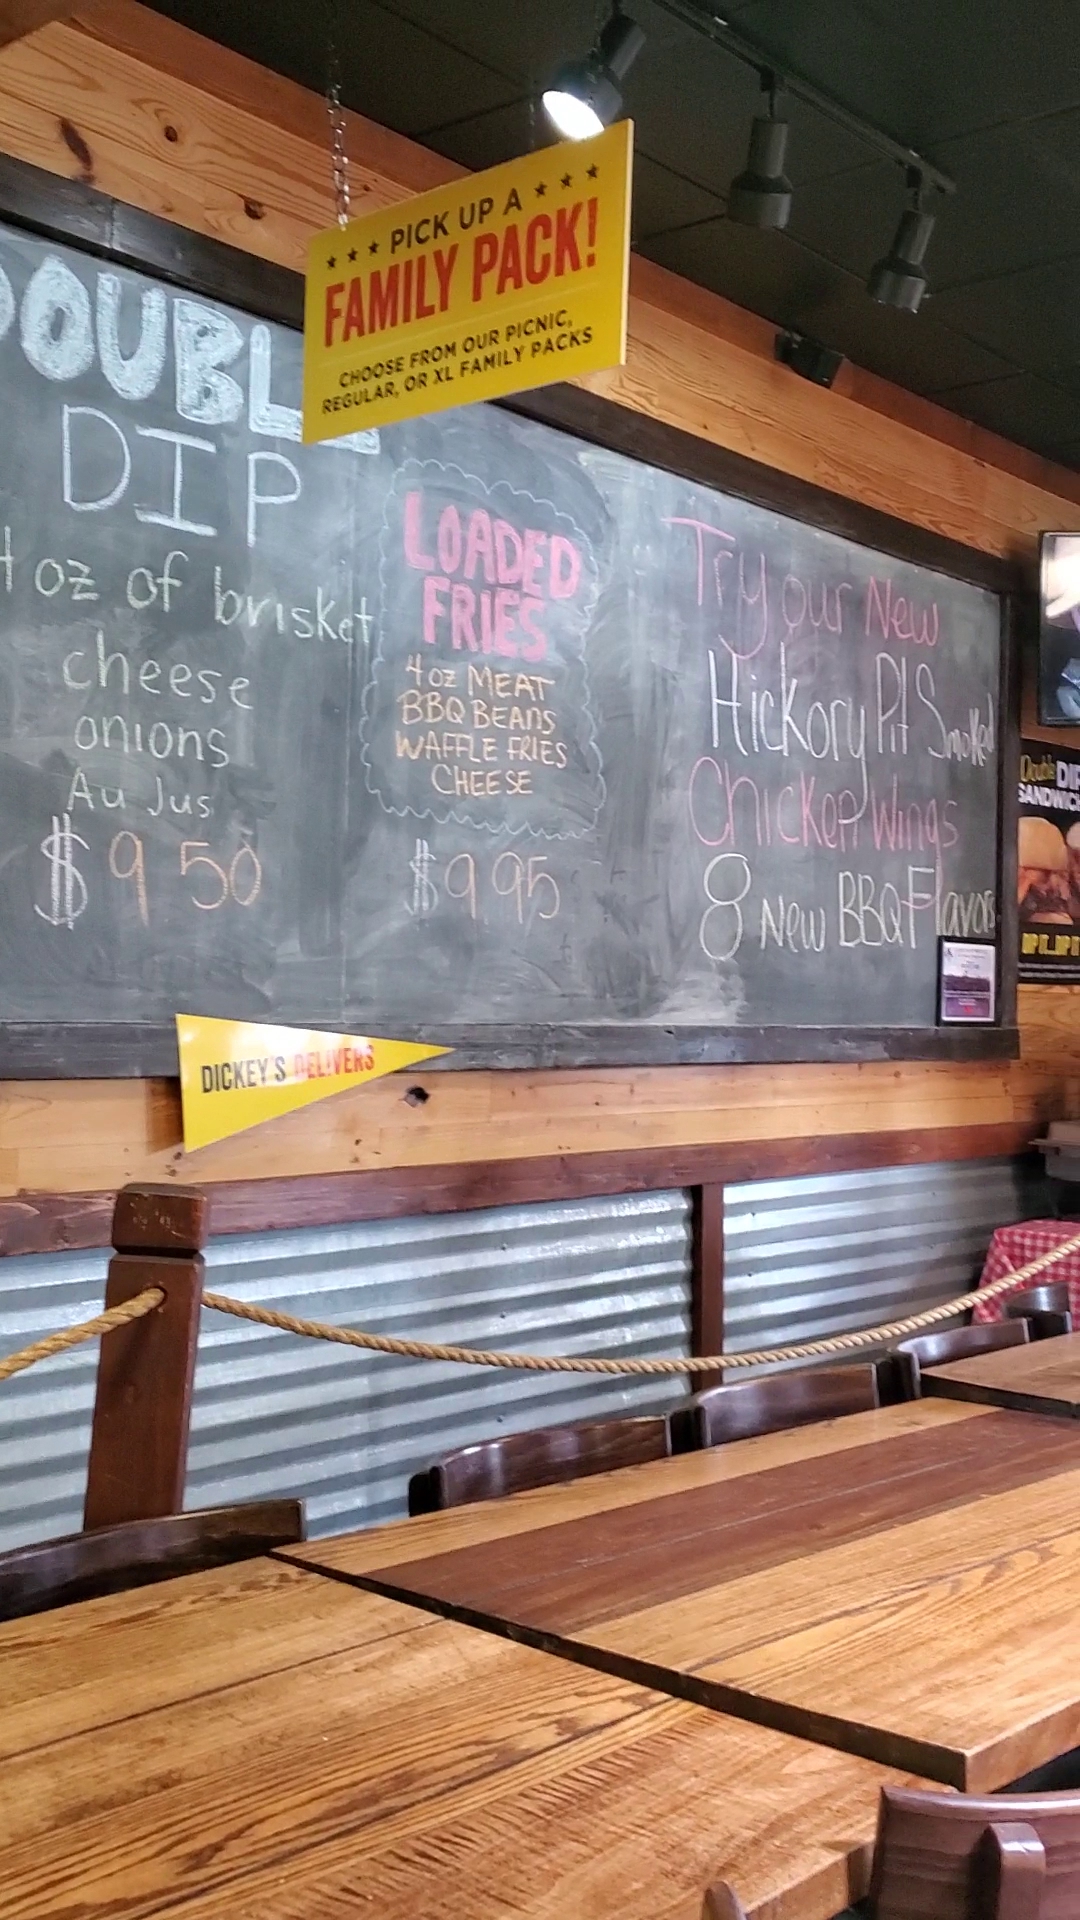 ★ ★ ★ PICK UP A ★ ★ ★
FAMILY PACK!
CHOOSE FROM OUR PICNIC,
REGULAR, OR XL FAMILY PACKS
DOUBLE
DIP
4 oz of brisket
cheese
onions
Au Jus
$9 50
LOADED
FRIES
4 oz MEAT
BBQ BEANS
WAFFLE FRIES
CHEESE
$9.95
Try our New
Hickory Pit Smoked
Chicken Wings
8 New BBQ Flavors
Double DIP
SANDWICH
DICKEY'S DELIVERS